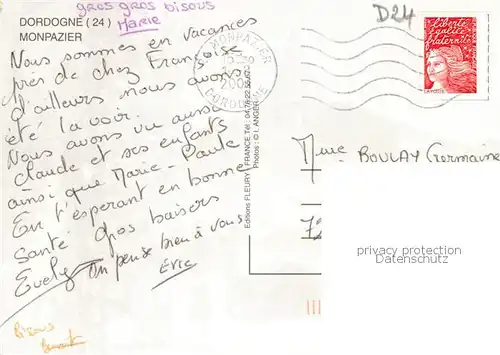 gros gros bisous
Marie
DORDOGNE (24)
MONPAZIER
Nous sommes en vacances
près de chez Françoise
d'ailleurs nous avons
été la voir.
Nous avons vu aussi
Claude et ses enfants
ainsi que Marie-Paule
En t'esperant en bonne
santé Gros baisers
Evelyn On pense bien à vous
Eric
Bisous
D24
MONPAZIER
DORDOGNE
liberté
égalité
fraternité
LA POSTE
Editions FLEURY / FRANCE Tél.: 04.78.22.55.67
Photos: © LANGER
Mme BOULAY Germaine
privacy protection
Datenschutz